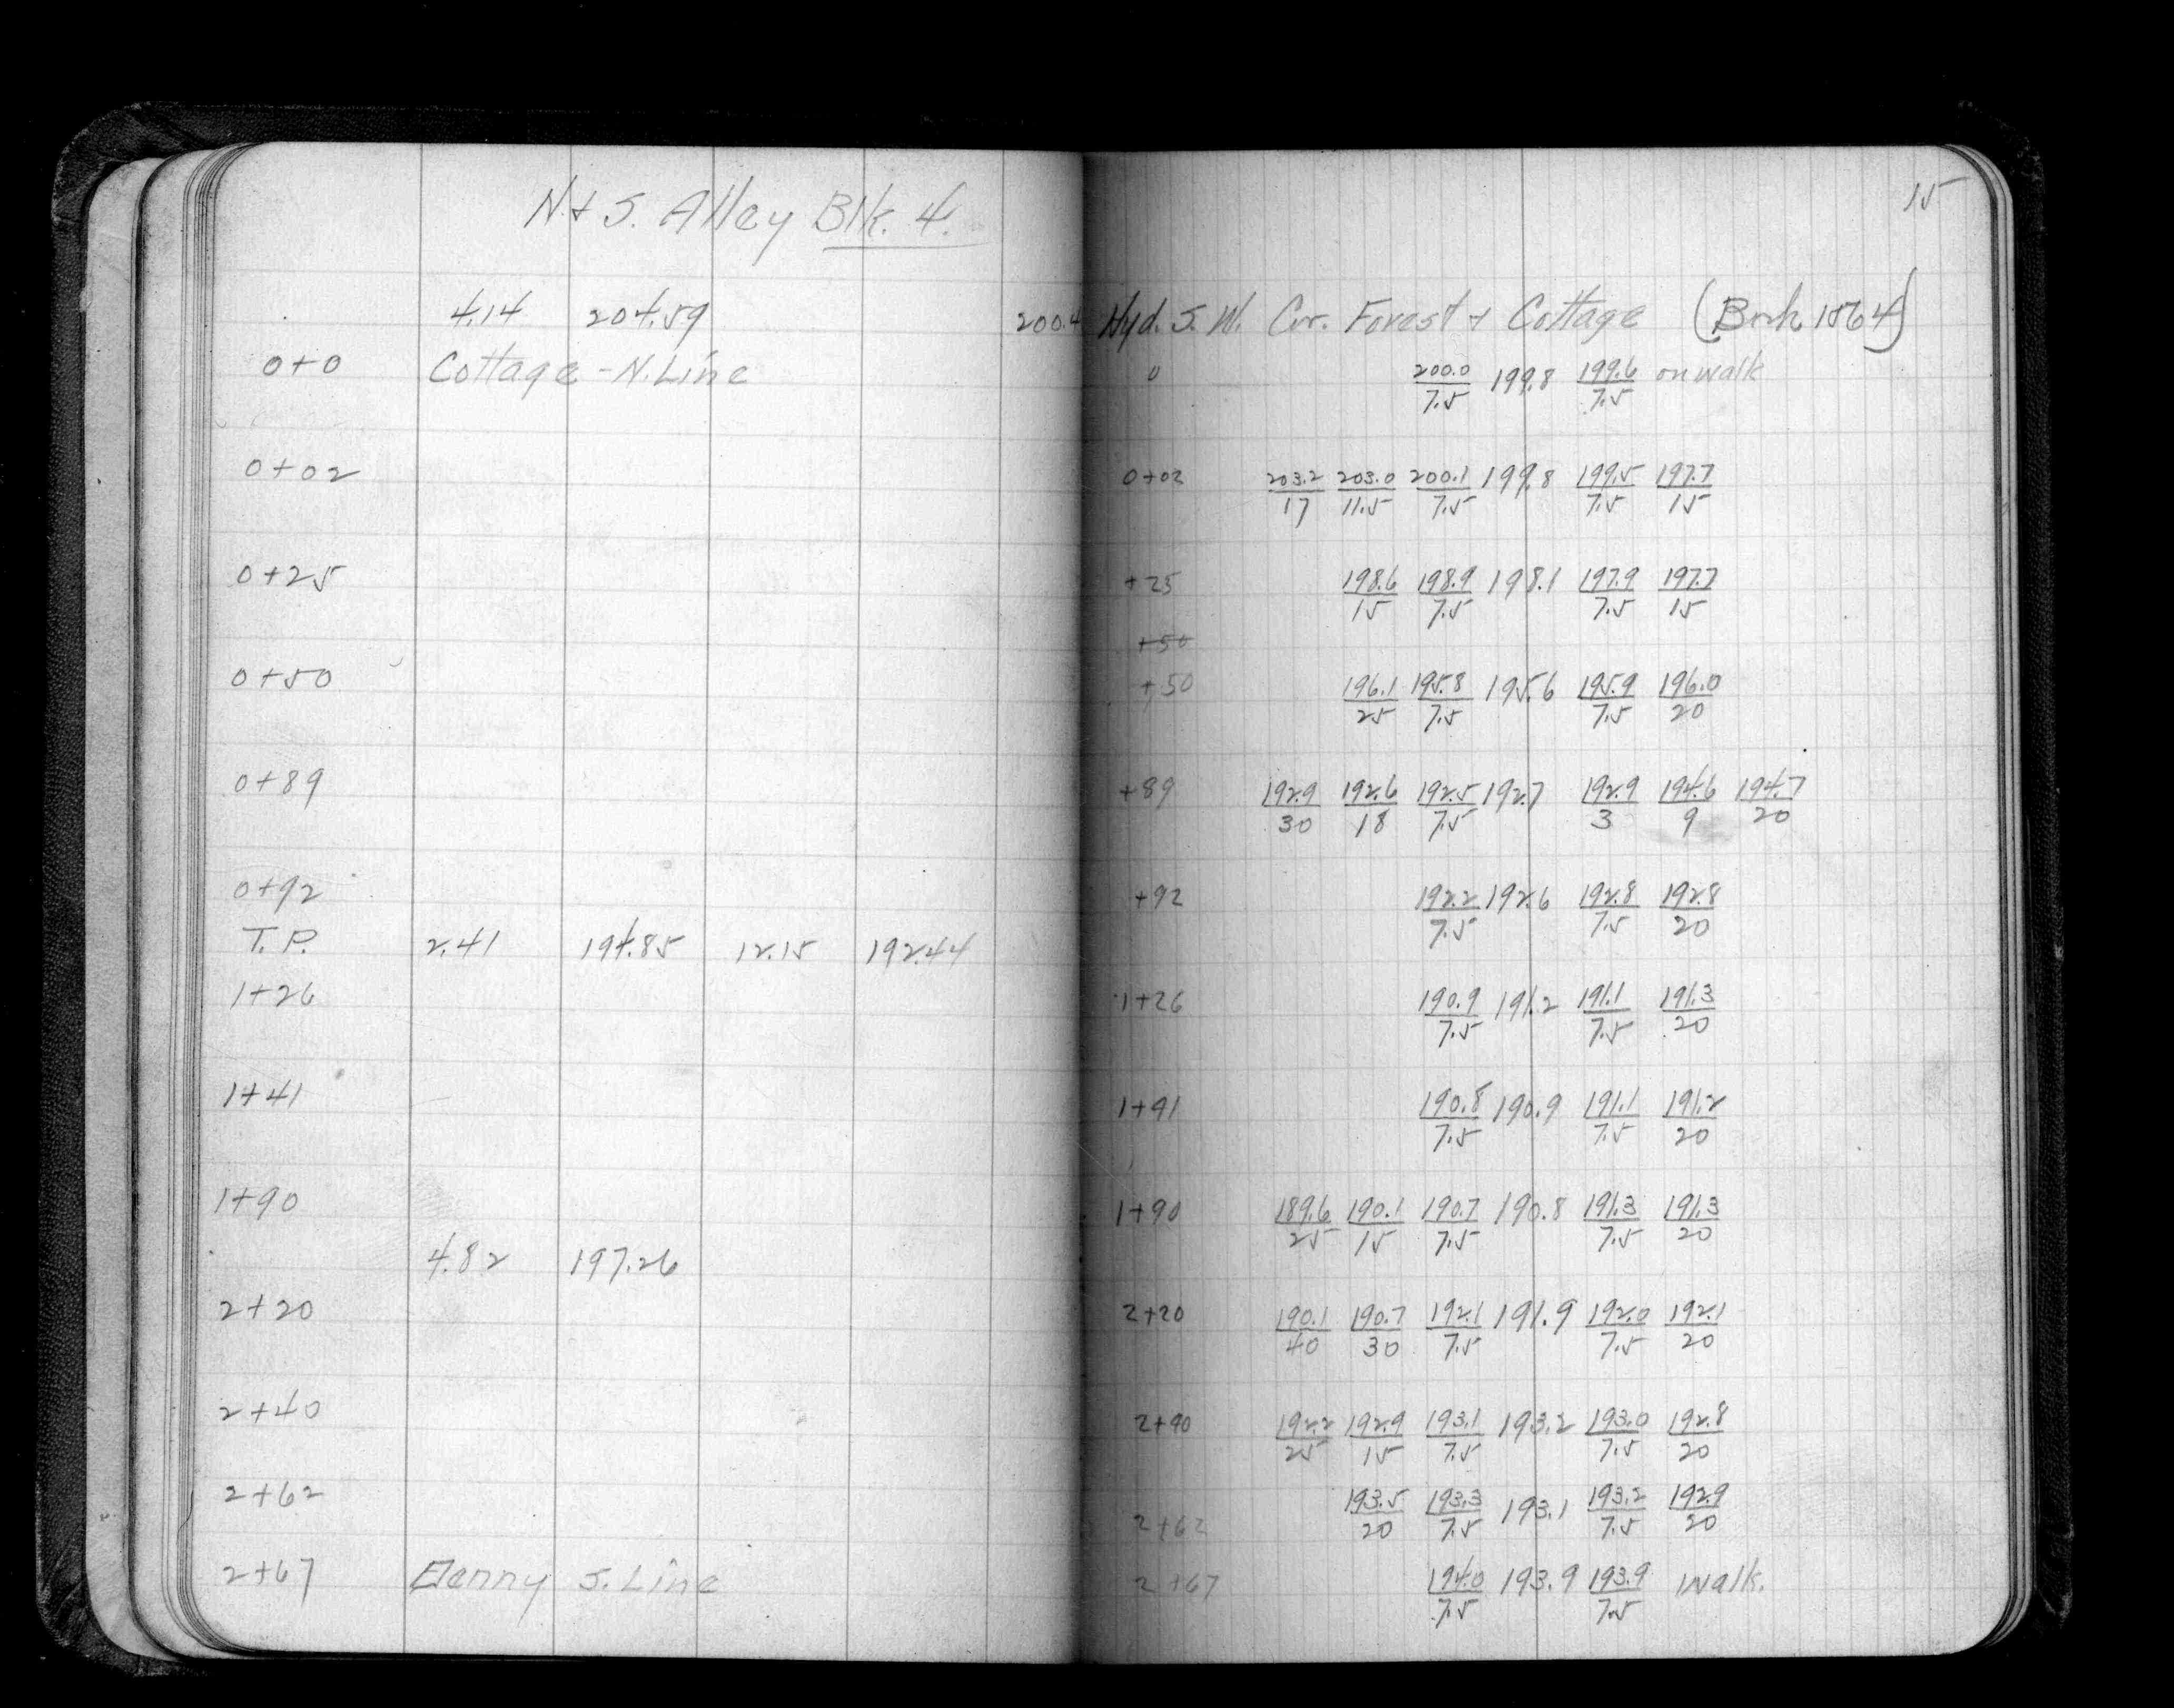 N. + S. Alley Blk. 4.
4.14 204.59 200.4
0+0 Cottage - N. Line
0+02
0+25
0+50
0+89
0+92
T. P. 2.41 194.85 12.15 192.44
1+26
1+41
1+90
4.82 197.26
2+20
2+40
2+62
2+67 Denny S. Line
15
Hyd. S. W. Cor. Forest + Cottage (Book 1564)
0 200.0/7.5 199.8 199.6/7.5 on walk
0+02 203.2/17 203.0/11.5 200.1/7.5 199.8 199.5/7.5 197.7/15
+25 198.6/15 198.9/7.5 198.1 197.9/7.5 197.7/15
+50
+50 196.1/25 195.8/7.5 195.6 195.9/7.5 196.0/20
+89 192.9/30 192.6/18 192.5/7.5 192.7 192.9/3 194.6/9 194.7/20
+92 192.2/7.5 192.6 192.8/7.5 192.8/20
1+26 190.9/7.5 191.2 191.1/7.5 191.3/20
1+41 190.8/7.5 190.9 191.1/7.5 191.2/20
1+90 189.6/25 190.1/15 190.7/7.5 190.8 191.3/7.5 191.3/20
2+20 190.1/40 190.7/30 192.1/7.5 191.9 192.0/7.5 192.1/20
2+40 192.2/25 192.9/15 193.1/7.5 193.2 193.0/7.5 192.8/20
2+62 193.5/20 193.3/7.5 193.1 193.2/7.5 192.9/20
2+67 194.0/7.5 193.9 193.9/7.5 walk.